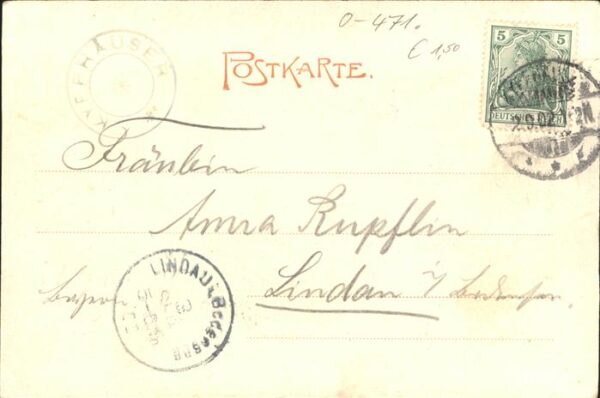 0-471.
€ 1,50
KYFFHÄUSER
POSTKARTE.
5 5
DEUTSCHES REICH
Fräulein
Anna Rupflin
Lindau i/ Bodensee.
Bayern
LINDAU i. Bodensee